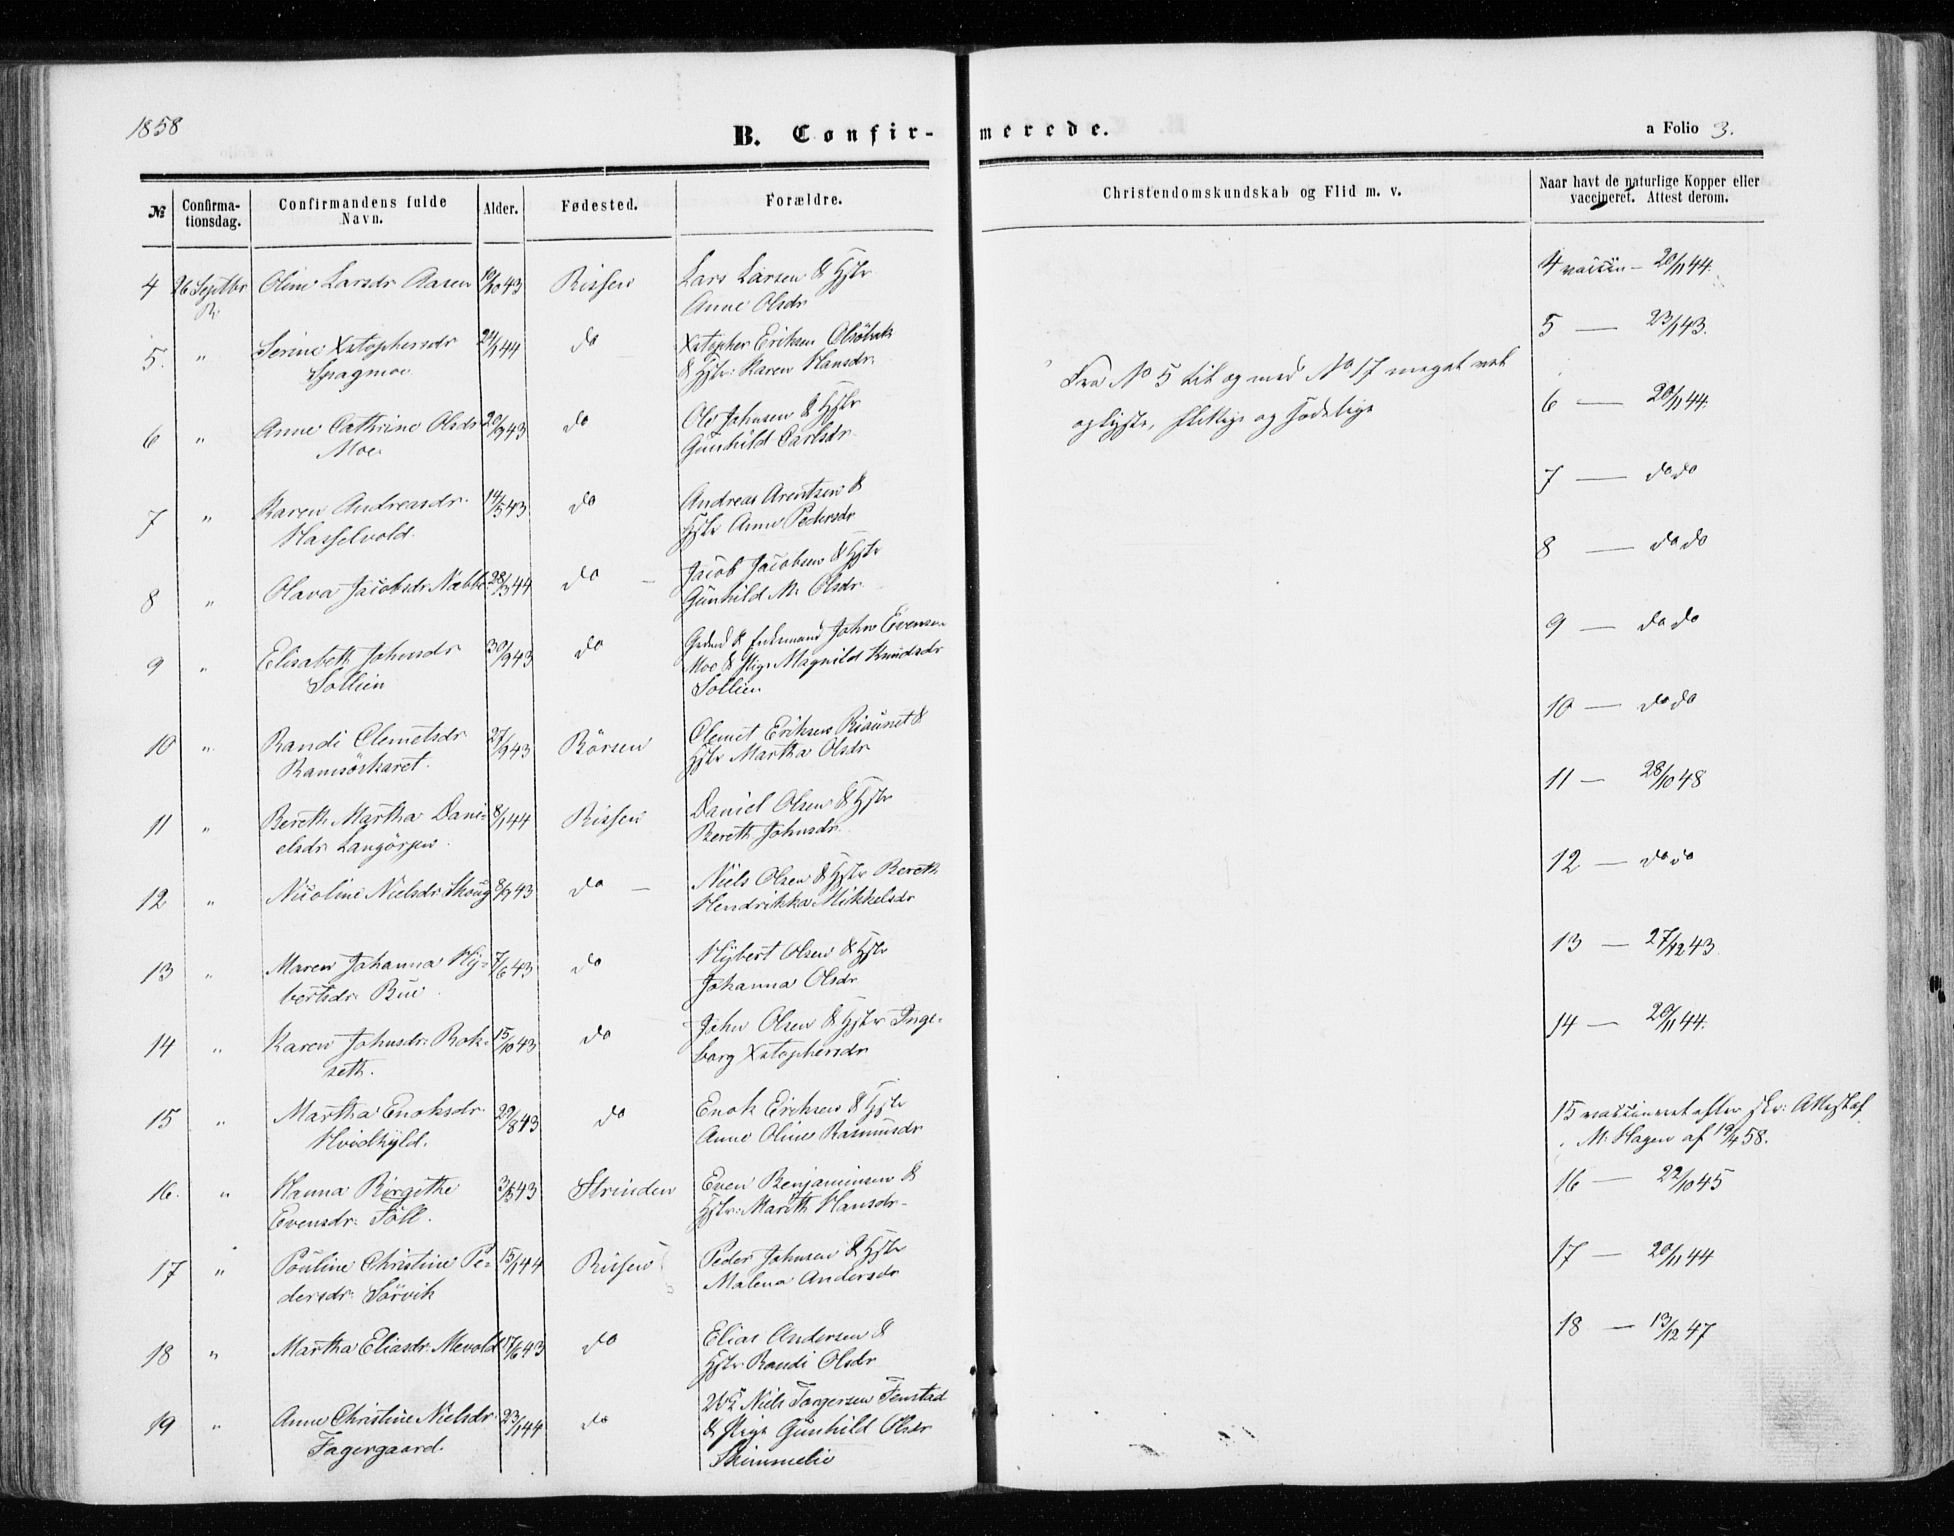 1858
B. Confir-
merede.
a Folio 3.
№
Confirma-
tionsdag.
Confirmandens fulde
Navn.
Alder.
Fødested.
Forældre.
Christendomskundskab og Flid m. v.
Naar havt de naturlige Kopper eller
vaccineret. Attest derom.
4 26 Septbr Oline Larsdr Aasen 10/10 43 Rissen Lars Larsen & Hstr
R. Anne Olsdr
4 vaccin - 20/11 44.
5. " Serine Xstophersdr 24/1 44 do Xstopher Eriksen
& Hstr: Karen Hansdr.
5 — 23/1 43.
Fra No 5 til og med No 17 meget vel
oplyste, flittige og sædelige
6 " Anne Cathrine Olsdr 20/9 43 do Ole Johnsen & Hstr
Moe Gunhild Carlsdr.
6 — 20/11 44.
7 " Karen Andreasdr. 14/5 43 do Andreas Arentsen &
Hasselvold. Hstr Anne Pedersdr
7 — do do
8 " Olava Jacobsdr Næbbe 28/3 44 do — Jacob Jacobsen & Hstr
Gunhild M. Olsdr.
8 — do do
9 " Elisabeth Johnsdr 30/9 43 do & Enkemand John Evensen
Sollien Moe & Pige Magnild Knudsdr
Sollien
9 — do do
10 " Randi Clemetsdr 27/9 43 Börsen Clemet Eriksen &
Ramsöskaret. Hstr Martha Olsdr.
10 — do do
11 " Bereth Martha Dani- 8/1 44 Rissen Daniel Olsen & Hstr
elsdr Langörjen. Bereth Johnsdr.
11 — 28/10 48
12 " Nicoline Nielsdr Skoug 8/9 43 do — Niels Olsen & Hstr Bereth
Hendrikka Mikkelsdr
12 — do do
13 " Maren Johanna Hy- 7/6 43 do Hybert Olsen & Hstr
bertsdr. Bue. Johanna Olsdr
13 — 27/12 43.
14 " Karen Johnsdr: Rok- 15/10 43 do John Olsen & Hstr Inge-
seth. borg Xstophersdr
14 — 20/11 44.
15 " Martha Enoksdr. 29/8 43 do Enok Eriksen & Hstr
Hvidhyld. Anne Oline Rasmusdr
15 vaccineret efter skr: Attest af
M. Hagen af 19/4 58.
16. " Hanna Birgithe 3/3 43 Strinden Even Benjaminsen &
Evensdr: Föll. Hstr: Marith Hansdr.
16 — 22/10 45
17 " Pouline Christine Pe- 15/1 44 Rissen Peder Johnsen & Hstr
dersdr: Sörvik Malena Andersdr
17 — 20/11 44
18 " Martha Eliasdr Mevold 17/6 43 do Elias Andersen &
Hstr. Randi Olsdr
18 — 13/12 47
19 " Anne Christine Nielsdr 23/1 44 do Niels Torgersen Fenstad
Fagergaard. & Pige Gunhild Olsdr
Skimmelie